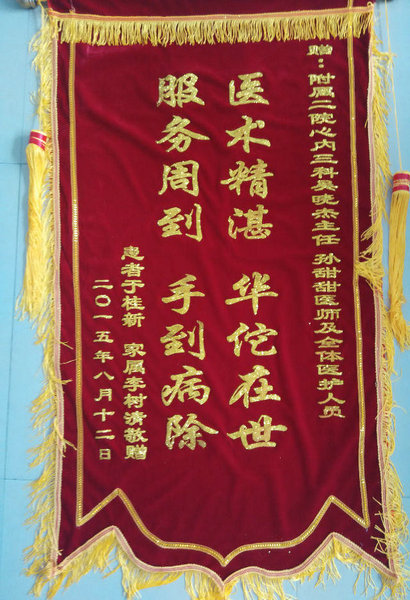 赠：附属二院心内三科吴晓杰主任 孙甜甜医师及全体医护人员
医术精湛 华佗在世
服务周到 手到病除
患者于桂新 家属李树清敬赠
二〇一五年八月十二日